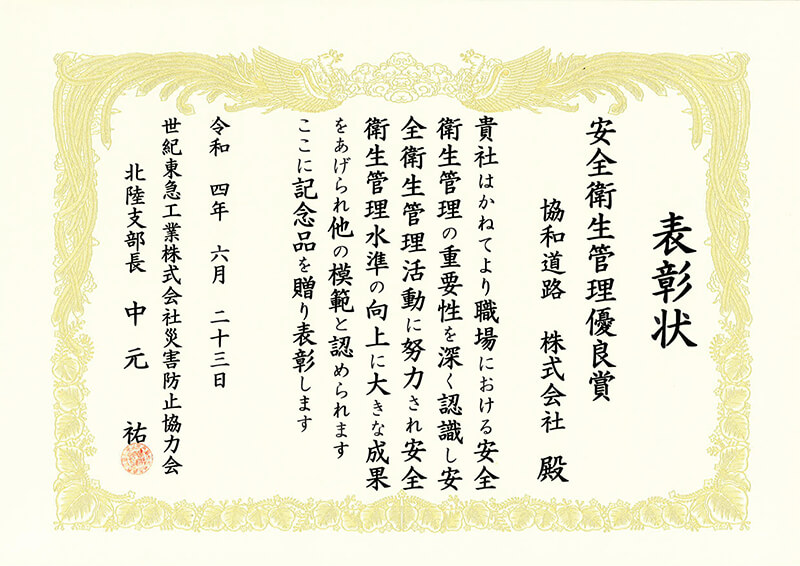 表彰状
安全衛生管理優良賞
協和道路 株式会社 殿
貴社はかねてより職場における安全
衛生管理の重要性を深く認識し安
全衛生管理活動に努力され安全
衛生管理水準の向上に大きな成果
をあげられ他の模範と認められます
ここに記念品を贈り表彰します
令和 四年 六月 二十三日
世紀東急工業株式会社災害防止協力会
北陸支部長 中元 祐